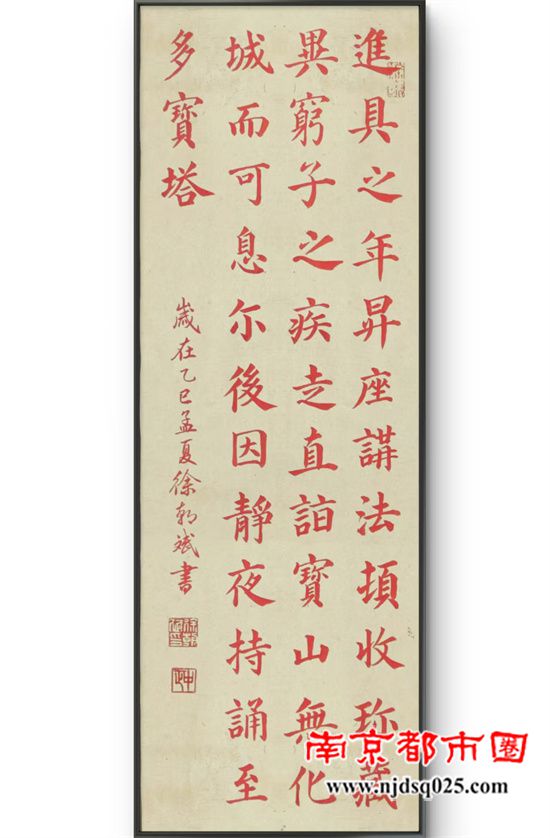 進具之年昇座講法頓收珎藏
異窮子之疾走直詣寶山無化
城而可息尔後因靜夜持誦至
多寶塔
歲在乙巳孟夏徐斌書
南京都市圈
www.njdsq025.com